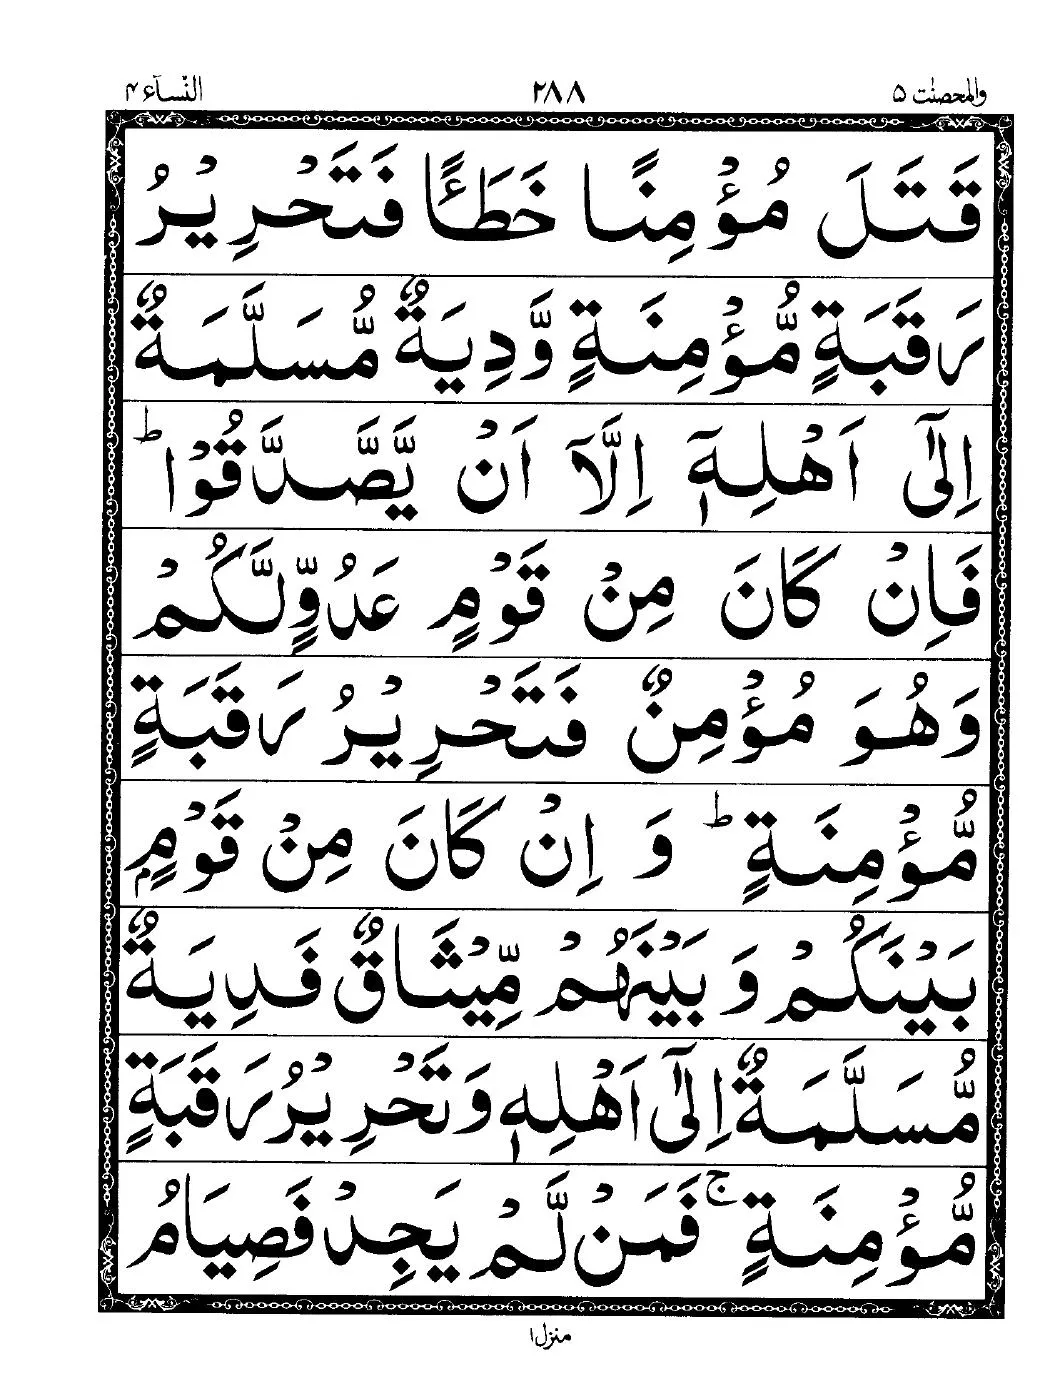 والمحصنٰت ۵
۲۸۸
النسآء ۴
قَتَلَ مُؤْمِنًا خَطَـًٔا فَتَحْرِيْرُ
رَقَبَةٍ مُّؤْمِنَةٍ وَّدِيَةٌ مُّسَلَّمَةٌ
اِلٰٓى اَهْلِهٖٓ اِلَّآ اَنْ يَّصَّدَّقُوْا ؕ
فَاِنْ كَانَ مِنْ قَوْمٍ عَدُوٍّ لَّكُمْ
وَهُوَ مُؤْمِنٌ فَتَحْرِيْرُ رَقَبَةٍ
مُّؤْمِنَةٍ ؕ وَ اِنْ كَانَ مِنْ قَوْمٍۭ
بَيْنَكُمْ وَ بَيْنَهُمْ مِّيْثَاقٌ فَدِيَةٌ
مُّسَلَّمَةٌ اِلٰٓى اَهْلِهٖ وَ تَحْرِيْرُ رَقَبَةٍ
مُّؤْمِنَةٍ ۚ فَمَنْ لَّمْ يَجِدْ فَصِيَامُ
منزل ۱